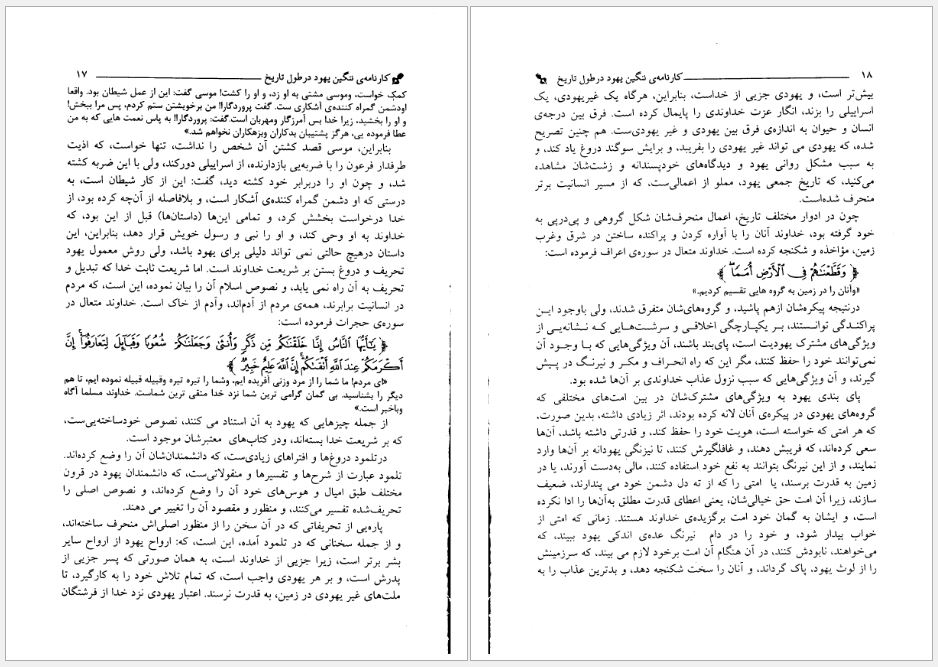 کارنامه‌ی ننگین یهود در طول تاریخ ۱۷
کمک خواست، وموسی مشتی به او زد، و او را کشت! موسی گفت: این از عمل شیطان بود. واقعا
اودشمن گمراه کننده‌ی آشکاری ست. گفت پروردگارا! من برخویشتن ستم کردم، پس مرا ببخش!
و او را بخشید، زیرا خدا بس آمرزگار ومهربان است.گفت: پروردگارا! به پاس نعمت هایی که به من
عطا فرموده یی، هرگز پشتیبان بدکاران وبزهکاران نخواهم شد.»
بنابراین، موسی قصد کشتن آن شخص را نداشت، تنها خواست، که اذیت
طرفدار فرعون را با ضربه‌یی بازدارنده، از اسراییلی دورکند، ولی با این ضربه کشته
شد، و چون او را دربرابر خود کشته دید، گفت: این از کار شیطان است، به
درستی که او دشمن گمراه کننده‌ی آشکار است، و بلافاصله از آن‌چه کرده بود، از
خدا درخواست بخشش کرد، و تمامی این‌ها (داستان‌ها) قبل از این بود، که
خداوند به او وحی کند، و او را نبی و رسول خویش قرار دهد، بنابراین، این
داستان درهیچ حالتی نمی تواند دلیلی برای یهود باشد، ولی روش معمول یهود
تحریف و دروغ بستن بر شریعت خداوند است. اما شریعت ثابت خدا که تبدیل و
تحریف به آن راه نمی یابد، و نصوص اسلام آن را بیان نموده، این است، که مردم
در انسانیت برابرند، همه‌ی مردم از آدم‌اند، وآدم از خاک است. خداوند متعال در
سوره‌ی حجرات فرموده است:
﴿ يَٰٓأَيُّهَا ٱلنَّاسُ إِنَّا خَلَقۡنَٰكُم مِّن ذَكَرٖ وَأُنثَىٰ وَجَعَلۡنَٰكُمۡ شُعُوبٗا وَقَبَآئِلَ لِتَعَارَفُوٓاْۚ إِنَّ
أَكۡرَمَكُمۡ عِندَ ٱللَّهِ أَتۡقَىٰكُمۡۚ إِنَّ ٱللَّهَ عَلِيمٌ خَبِيرٞ ﴾
«ای مردم! ما شما را از مرد وزنی آفریده ایم، وشما را تیره تیره وقبیله قبیله نموده ایم، تا هم
دیگر را بشناسید. بی گمان گرامی ترین شما نزد خدا متقی ترین شماست. خداوند مسلما آگاه
وباخبر است.»
از جمله چیزهایی که یهود به آن استناد می کنند، نصوص خودساخته‌یی‌ست،
که بر شریعت خدا بسته‌اند، ودر کتاب‌های معتبرشان موجود است.
درتلمود دروغ‌ها و افتراهای زیادی‌ست، که دانشمندان‌شان آن را وضع کرده‌اند.
تلمود عبارت از شرح‌ها و تفسیرها و منقولاتی‌ست، که دانشمندان یهود در قرون
مختلف طبق امیال و هوس‌های خود آن را وضع کرده‌اند، و نصوص اصلی را
تحریف‌شده تفسیر می‌کنند، و منظور و مقصود آن را تغییر می دهند.
پاره‌یی از تحریفاتی که در آن سخن را از منظور اصلی‌اش منحرف ساخته‌اند،
و از جمله سخنانی که در تلمود آمده، این است، که: ارواح یهود از ارواح سایر
بشر برتر است، زیرا جزیی از خداوند است، به همان صورتی که پسر جزیی از
پدرش است، و بر هر یهودی واجب است، که تمام تلاش خود را به کارگیرد، تا
ملت‌های غیر یهودی در زمین، به قدرت نرسند. اعتبار یهودی نزد خدا از فرشتگان
۱۸ کارنامه‌ی ننگین یهود در طول تاریخ
بیش‌تر است، و یهودی جزیی از خداست، بنابراین، هرگاه یک غیریهودی، یک
اسراییلی را بزند، انگار عزت خداوندی را پایمال کرده است. فرق بین درجه‌ی
انسان و حیوان به اندازه‌ی فرق بین یهودی و غیر یهودی‌ست. هم چنین تصریح
شده، که یهودی می تواند غیر یهودی را بفریبد، و برایش سوگند دروغ یاد کند، و
به سبب مشکل روانی یهود و دیدگاه‌های خودپسندانه و زشت‌شان مشاهده
می‌کنید، که تاریخ جمعی یهود، مملو از اعمالی‌ست، که از مسیر انسانیت برتر
منحرف شده‌است.
چون در ادوار مختلف تاریخ، اعمال منحرف‌شان شکل گروهی و پی‌درپی به
خود گرفته بود، خداوند آنان را با آواره کردن و پراکنده ساختن در شرق وغرب
زمین، مؤاخذه و شکنجه کرده است. خداوند متعال در سوره‌ی اعراف فرموده است:
﴿ وَقَطَّعۡنَٰهُمۡ فِي ٱلۡأَرۡضِ أُمَمٗا ﴾
«وآنان را در زمین به گروه هایی تقسیم کردیم.»
درنتیجه پیکره‌شان ازهم پاشید، و گروه‌های‌شان متفرق شدند، ولی باوجود این
پراکندگی توانستند، بر یکپارچگی اخلاقی و سرشت‌هایی که نشانه‌یی از
ویژگی‌های مشترک یهودیت است، پای‌بند باشند، آن ویژگی‌هایی که با وجود آن
نمی‌توانند خود را حفظ کنند، مگر این که راه انحراف و مکر و نیرنگ در پیش
گیرند، و آن ویژگی‌هایی که سبب نزول عذاب خداوندی بر آن‌ها شده بود.
پای بندی یهود به ویژگی‌های مشترک‌شان در بین امت‌های مختلفی که
گروه‌های یهودی در پیکره‌ی آنان لانه کرده بودند، اثر زیادی داشته، بدین صورت،
که هر امتی که خواسته است، هویت خود را حفظ کند، و قدرتی داشته باشد، آن‌ها
سعی کرده‌اند، که فریبش دهند، و غافلگیرش کنند، تا نیزنگی یهودانه بر آن‌ها وارد
نمایند، و از این نیرگ بتوانند به نفع خود استفاده کنند، مالی به‌دست آورند، یا در
زمین به قدرت برسند، یا امتی را که از ته دل دشمن خود می پندارند، ضعیف
سازند، زیرا آن امت حق خیالی‌شان، یعنی اعطای قدرت مطلق به‌آن‌ها را ادا نکرده
است، و ایشان به گمان خود امت برگزیده‌ی خداوند هستند. زمانی که امتی از
خواب بیدار شود، و خود را در دام نیرنگ عده‌ی اندکی یهود ببیند، که
می‌خواهند، نابودش کنند، در آن هنگام آن امت برخود لازم می بیند، که سرزمینش
را از لوث یهود، پاک گرداند، و آنان را سخت شکنجه دهد، و بدترین عذاب را به